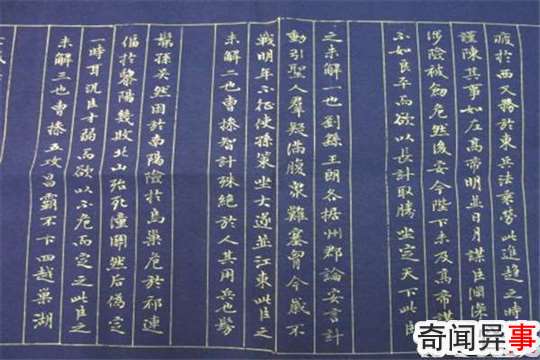 疲於西又務於東兵法乘勞此進趨之時
謹陳其事如左高帝明並日月謀臣淵深
涉險被創危然後安今陛下未及高帝謀
不如良平而欲以長計取勝坐定天下此臣
之未解一也劉繇王朗各據州郡論安言計
動引聖人羣疑滿腹眾難塞胷今歲不
戰明年不征使孫策坐大遂並江東此臣之
未解二也曹操智計殊絕於人其用兵也髣
髴孫吳然困於南陽險於烏巢危於祁連
偪於黎陽幾敗北山殆死潼關然后偽定
一時耳況臣才弱而欲以不危而定之此臣之
未解三也曹操五攻昌霸不下四越巢湖
奇闻异事